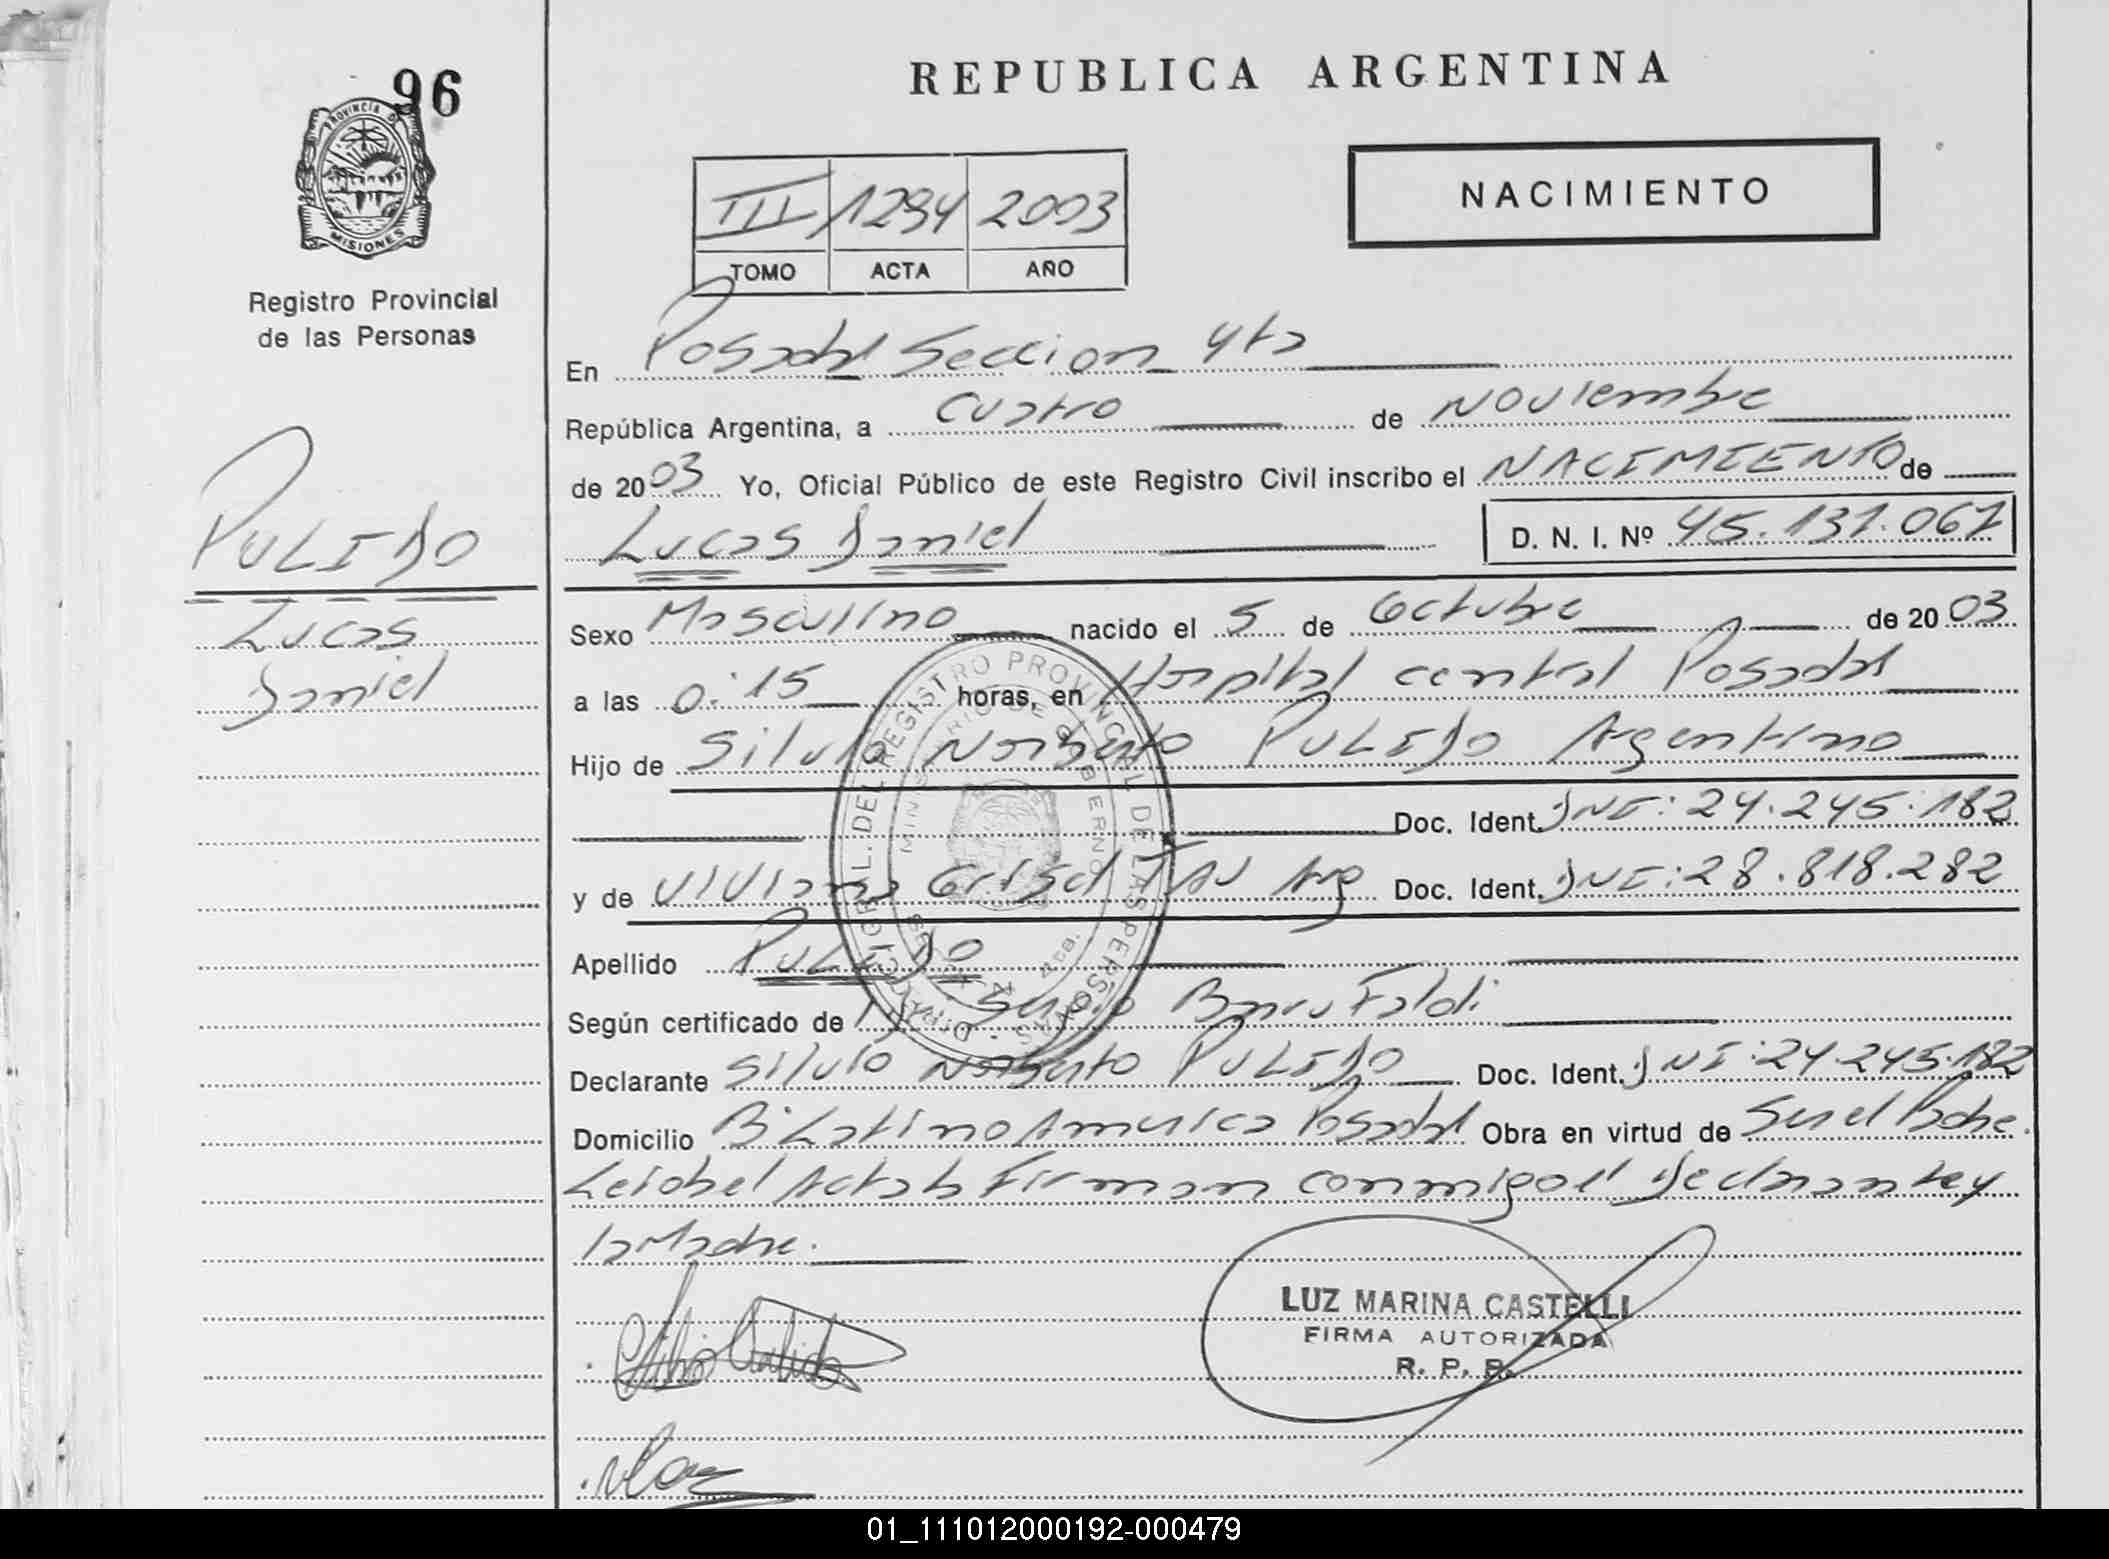 96
PROVINCIA DE
MISIONES
Registro Provincial
de las Personas
PULIDO
Lucas
Daniel
REPUBLICA ARGENTINA
NACIMIENTO
III 1294 2003
TOMO ACTA AÑO
En Posadas Seccion 4ta
República Argentina, a Cuatro de Noviembre
de 2003 Yo, Oficial Público de este Registro Civil inscribo el NACIMIENTO de
Lucas Daniel D. N. I. Nº 45.137.067
Sexo Masculino nacido el 5 de Octubre de 2003
a las 0:15 horas, en Hospital central Posadas
Hijo de Silvio Norberto PULIDO Argentino
Doc. Ident. DNI: 24.245.182
y de Viviana Grisel Arg Doc. Ident. DNI: 28.818.282
Apellido PULIDO
Según certificado de Sergio
Declarante Silvio Norberto PULIDO Doc. Ident. DNI: 24.245.182
Domicilio Bº Latinoamerica Posadas Obra en virtud de Ser el Padre.
Leida el Acta la Firman conmigo el Declarante y
la Madre.
DIR. GRAL. DEL REGISTRO PROVINCIAL DE LAS PERSONAS
MINISTERIO DE GOBIERNO
LUZ MARINA CASTELLI
FIRMA AUTORIZADA
R. P. P.
01_111012000192-000479